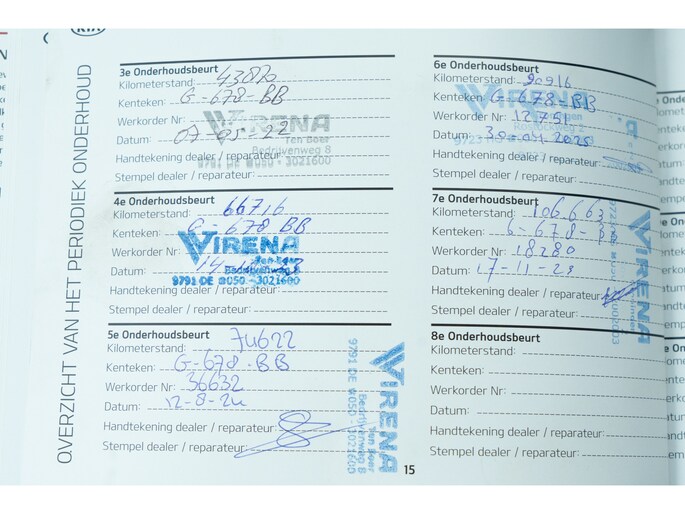 KIA
OVERZICHT VAN HET PERIODIEK ONDERHOUD
3e Onderhoudsbeurt
Kilometerstand: 43870
Kenteken: G-678-BB
Werkorder Nr:
Datum: 07-03-22
Handtekening dealer / reparateur:
Stempel dealer / reparateur:
VIRENA
Ten Boer
Bedrijvenweg 8
9791 DE ☎050 - 3021600
4e Onderhoudsbeurt
Kilometerstand: 66716
Kenteken: G-678 BB
Werkorder Nr:
Datum: 14
Handtekening dealer / reparateur:
Stempel dealer / reparateur:
VIRENA
Ten Boer
Bedrijvenweg 8
9791 DE ☎050 - 3021600
5e Onderhoudsbeurt
Kilometerstand: 74622
Kenteken: G-678-BB
Werkorder Nr: 36632
Datum: 12-8-24
Handtekening dealer / reparateur:
Stempel dealer / reparateur:
VIRENA
Ten Boer
Bedrijvenweg 8
9791 DE ☎050 - 3021600
15
6e Onderhoudsbeurt
Kilometerstand: 90916
Kenteken: G-678-BB
Werkorder Nr: 12751
Datum: 30-04-2025
Handtekening dealer / reparateur:
Stempel dealer / reparateur:
VIRENA
7e Onderhoudsbeurt
Kilometerstand: 106.663
Kenteken: G-678-BB
Werkorder Nr: 18280
Datum: 17-11-25
Handtekening dealer / reparateur:
Stempel dealer / reparateur:
VIRENA
8e Onderhoudsbeurt
Kilometerstand:
Kenteken:
Werkorder Nr:
Datum:
Handtekening dealer / reparateur:
Stempel dealer / reparateur: